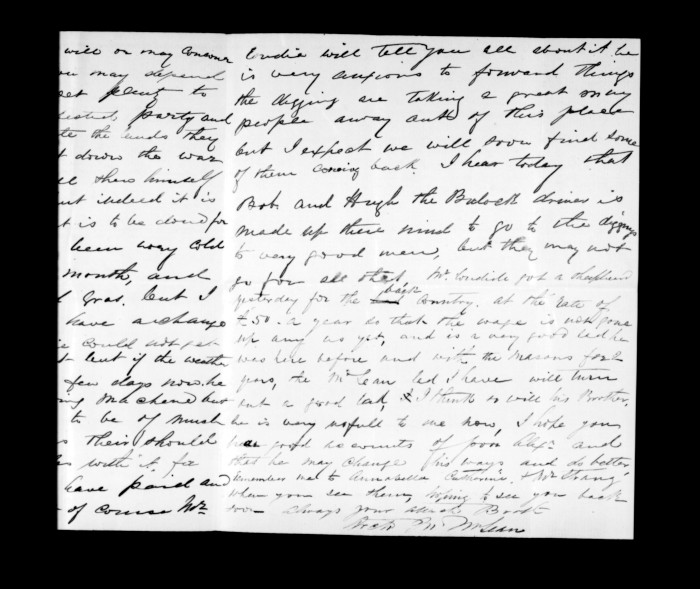 will or may concur
you may depend
get plenty to
party and
the lands they
down the war
himself
but indeed it is
it is to be done for
been very cold
month, and
Gras. but I
have a change
could not get
but if the weather
few days now. he
but
to be of much
their should
with it for
have paid and
of course Mr
will tell you all about it he
is very anxious to forward things
the digging are taking a great many
people away out of this place
but I expect we will soon find some
of them coming back. I hear today that
Bob. and Hugh the Bulock driver is
made up there mind to go to the diggings
to very good men, but they may not
go for all that, Mr got a shepherd
yesterday for the back Country. at the rate of
£50. a year so that the wage is not gone
up any as yet, and is a very good lad he
was here before and with the Masons for 2
years, the McLean lad I have will turn
out a good lad, & I think so will his Brother,
he is very usfull to me now, I hope you
have good accounts of poor Alexr and
that he may change his ways and do better,
Remember me to Annabella Catherine & Mr Strang
when you see them, hoping to see you back
soon always your affect Broth
Arch Jn McLean